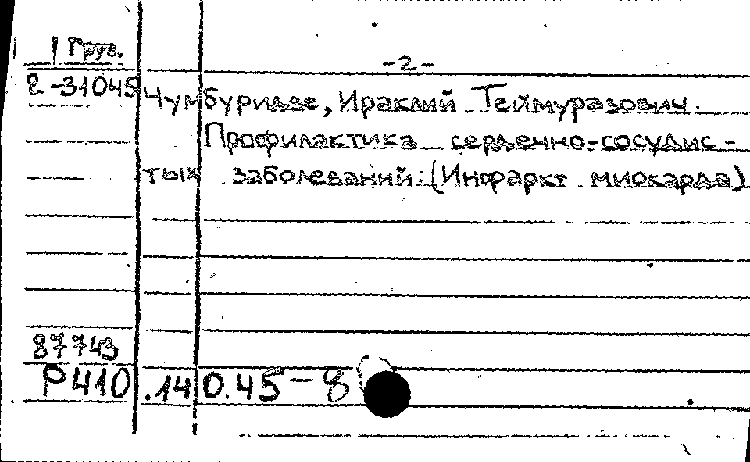 1 Груз.
-2-
2-31045
Чумбуридзе, Ираклий Теймуразович.
Профилактика сердечно-сосудис-
тых заболеваний. (Инфаркт миокарда)
87743
P410.140.45-8